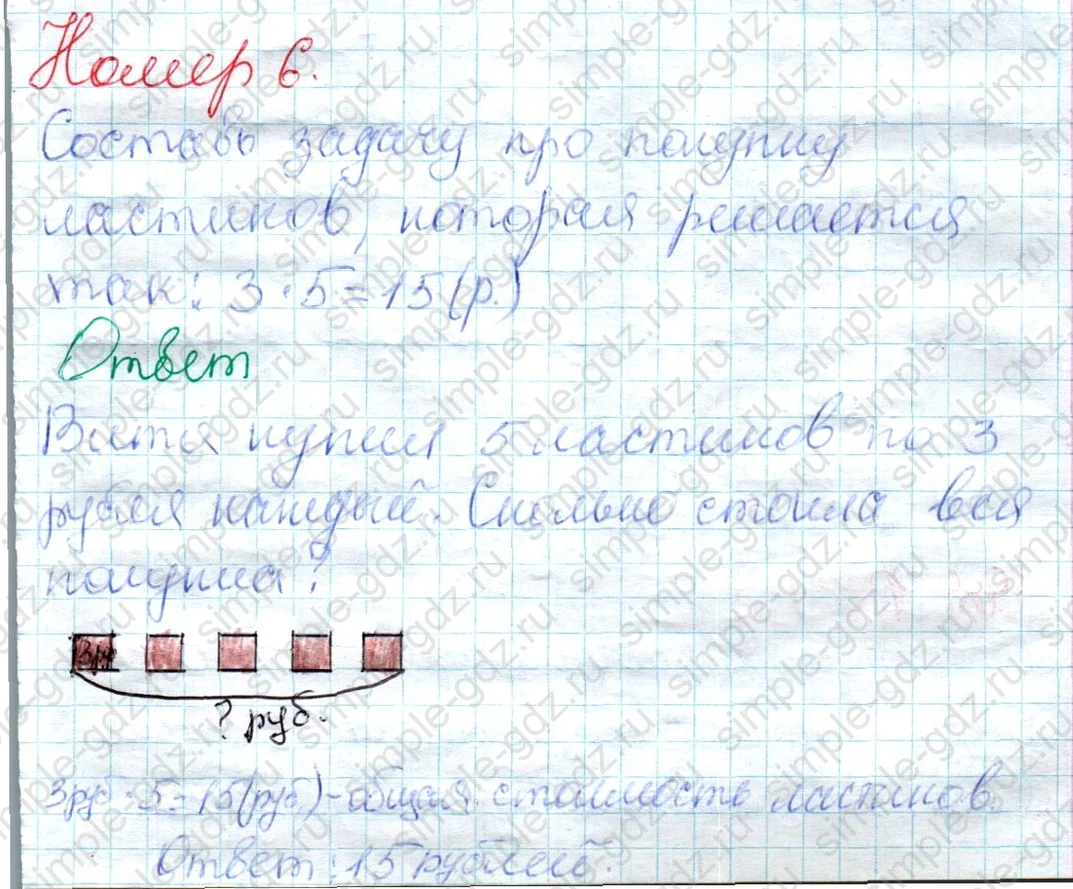 Номер 6.
Составь задачу про покупку
ластиков, которая решается
так: 3 · 5 = 15 (р.)
Ответ
Витя купил 5 ластиков по 3
рубля каждый. Сколько стоила вся
покупка?
3р
? руб.
3руб · 5 = 15 (руб.) - общая стоимость ластиков.
Ответ: 15 рублей.
simple-gdz.ru